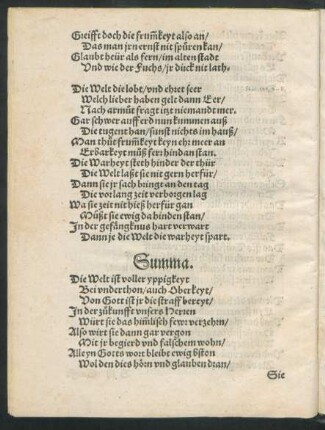 Greifft doch die frum̃keyt also an/
Das man jrn ernst nit spüren kan/
Glaubt heür als fern/im alten stadt
Vnd wie der Fuchs/jr dück nit lath.
Die Welt die lobt/vnd ehret seer
Welch lieber haben gelt dann Eer/
Nach armůt fragt itzt niemandt mer.
Gar schwer auff erd nun kummen auß
Die tugent han/sunst nichts im hauß/
Man thůt frum̃keyt keyn eht meer an
Erbarkeyt můß ferr hindan stan.
Die Warheyt steth hinder der thür
Die Welt laßt sie nit gern herfür/
Dann sie jr sach bringt an den tag
Die vor lang zeyt verborgen lag
Wa sie zeyt nit hieß herfür gan
Müßt sie ewig da hinden stan/
In der gefängknus hart verwart
Dann je die Welt die warheyt spart.
Summa.
Die Welt ist voller yppigkeyt
Bei vnderthon/auch Oberkeyt/
Von Gott ist jr die straff bereyt/
In der zůkunfft vnsers Herren
Würt sie das him̃lisch fewr verzehrn/
Also wirt sie dann gar vergon
Mit jr begierd vnd falschem wohn/
Alleyn Gotts wort bleibt ewig bston
Wol den dies hörn vnd glauben dran/
Sie